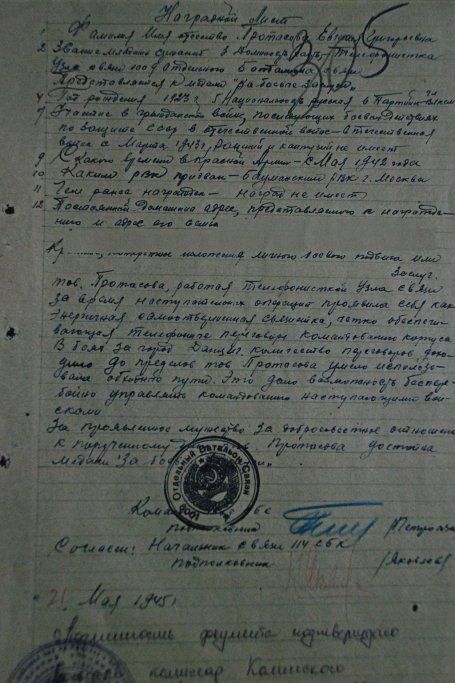 Наградной Лист
1. Фамилия Имя отчество Протасова Евгения Григорьевна
2. Звание младший сержант 3 Должность часть Телефонистка
узла связи 1009 Отдельного Батальона связи
представляется к медали "За боевые заслуги"
4 Год рождения 1923 г. 5 Национальность русская 6 Партийн.
7 Участие в гражданской войне, последующих боевых действиях
по защите СССР в отечественной войне - в отечественной
войне с Марта 1943 г, ранений и контузий не имеет
9 С какого времени в Красной Армии - с Мая 1942 года
10 Каким РВК призван - Бауманским РВК г. Москва
11 Чем ранее награжден - наград не имеет
12 Постоянный домашний адрес, представляемого к награжде-
нию и адрес его семьи
Кр конкретное изложение личного боевого подвига или
заслуг.
тов. Протасова, работая телефонисткой узла связи
за время наступательных операций проявила себя как
энергичная самоотверженная связистка, четко обеспечи-
вающая телефонные переговоры командованию корпуса
В боях за город Данциг, количество переговоров дохо-
дило до пределов тов. Протасова умело использо-
вала обходные пути. Это дало возможность беспере-
бойно управлять командованию наступающими вой-
сками
За проявленное мужество за добросовестное отношение
к порученному Протасова достойна
медали "За бое
Отдельный Батальон Связи
1009
Кома бс
подполковник
Согласен: Начальник связи 114 СБК
подполковник /Яковлев/
"21" Мая 1945 г
Подлинность документа подтверждаю
комиссар Калинского